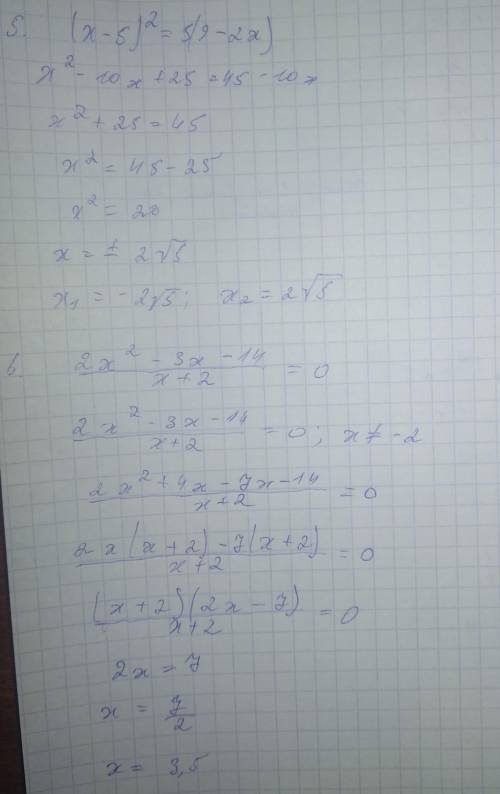 5. (x-5)² = 5(9-2x)
x² - 10x + 25 = 45 - 10x
x² + 25 = 45
x² = 45 - 25
x² = 20
x = ± 2√5
x₁ = -2√5; x₂ = 2√5
6. (2x² - 3x - 14)/(x+2) = 0
(2x² - 3x - 14)/(x+2) = 0; x ≠ -2
(2x² + 4x - 7x - 14)/(x+2) = 0
(2x(x+2) - 7(x+2))/(x+2) = 0
((x+2)(2x-7))/(x+2) = 0
2x = 7
x = 7/2
x = 3,5